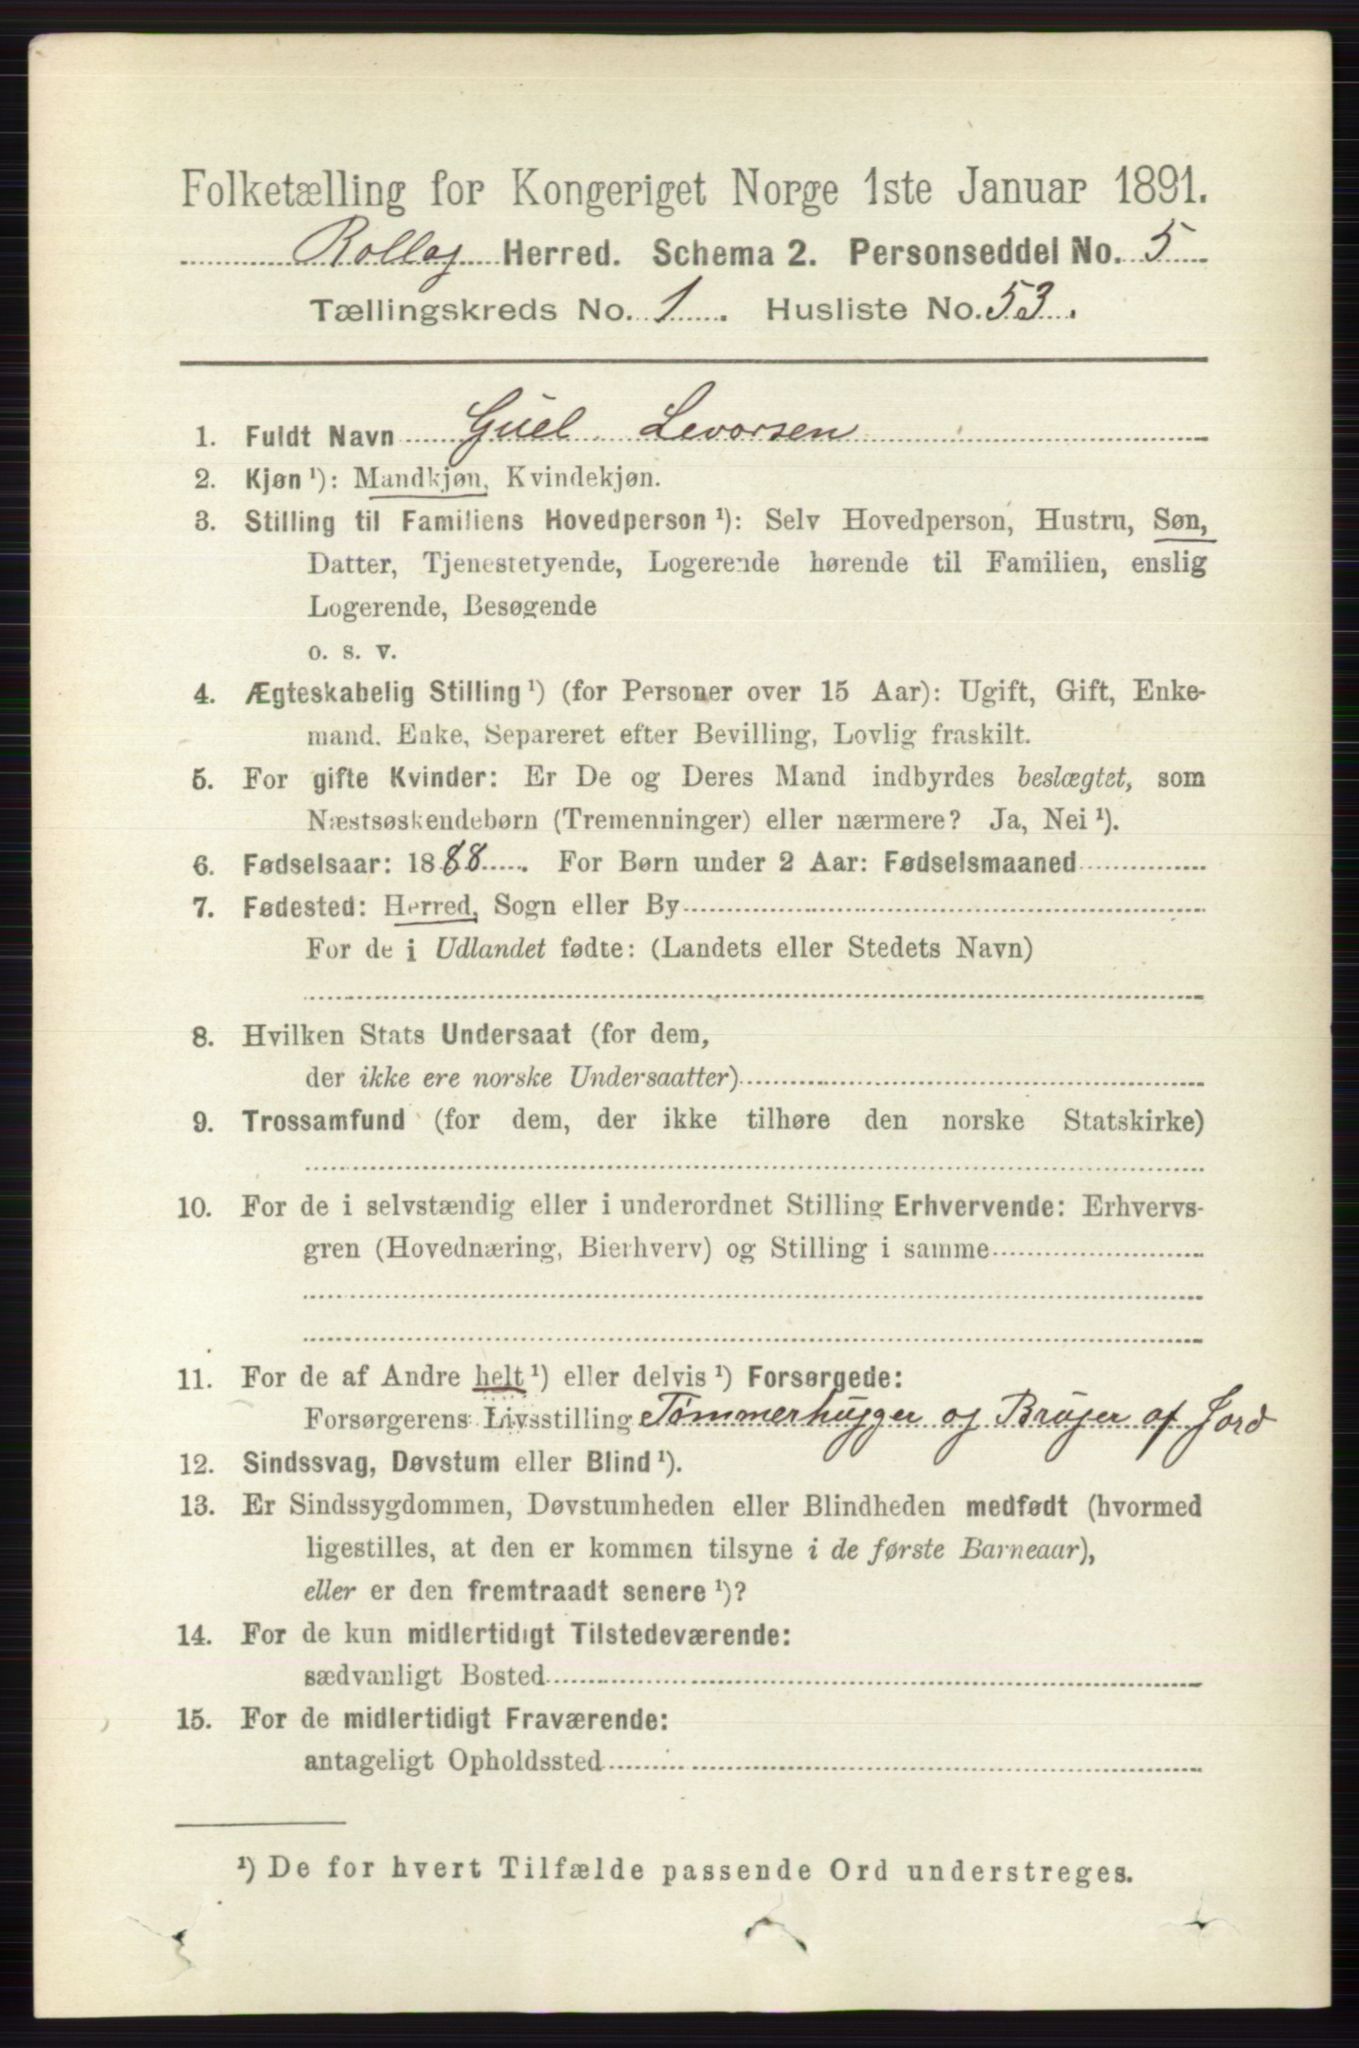 Folketælling for Kongeriget Norge 1ste Januar 1891.
Rollag Herred. Schema 2. Personseddel No. 5
Tællingskreds No. 1. Husliste No. 53.
1. Fuldt Navn Guel Levorsen
2. Kjøn ¹): Mandkjøn, Kvindekjøn.
3. Stilling til Familiens Hovedperson ¹): Selv Hovedperson, Hustru, Søn,
Datter, Tjenestetyende, Logerende hørende til Familien, enslig
Logerende, Besøgende
o. s. v.
4. Ægteskabelig Stilling ¹) (for Personer over 15 Aar): Ugift, Gift, Enke-
mand, Enke, Separeret efter Bevilling, Lovlig fraskilt.
5. For gifte Kvinder: Er De og Deres Mand indbyrdes beslægtet, som
Næstsøskendebørn (Tremenninger) eller nærmere? Ja, Nei ¹).
6. Fødselsaar: 1888. For Børn under 2 Aar: Fødselsmaaned
7. Fødested: Herred, Sogn eller By
For de i Udlandet fødte: (Landets eller Stedets Navn)
8. Hvilken Stats Undersaat (for dem,
der ikke ere norske Undersaatter)
9. Trossamfund (for dem, der ikke tilhøre den norske Statskirke)
10. For de i selvstændig eller i underordnet Stilling Erhvervende: Erhvervs-
gren (Hovednæring, Bierhverv) og Stilling i samme
11. For de af Andre helt ¹) eller delvis ¹) Forsørgede:
Forsørgerens Livsstilling Tømmerhugger og Bruger af Jord
12. Sindssvag, Døvstum eller Blind ¹).
13. Er Sindssygdommen, Døvstumheden eller Blindheden medfødt (hvormed
ligestilles, at den er kommen tilsyne i de første Barneaar),
eller er den fremtraadt senere ¹)?
14. For de kun midlertidigt Tilstedeværende:
sædvanligt Bosted
15. For de midlertidigt Fraværende:
antageligt Opholdssted
¹) De for hvert Tilfælde passende Ord understreges.